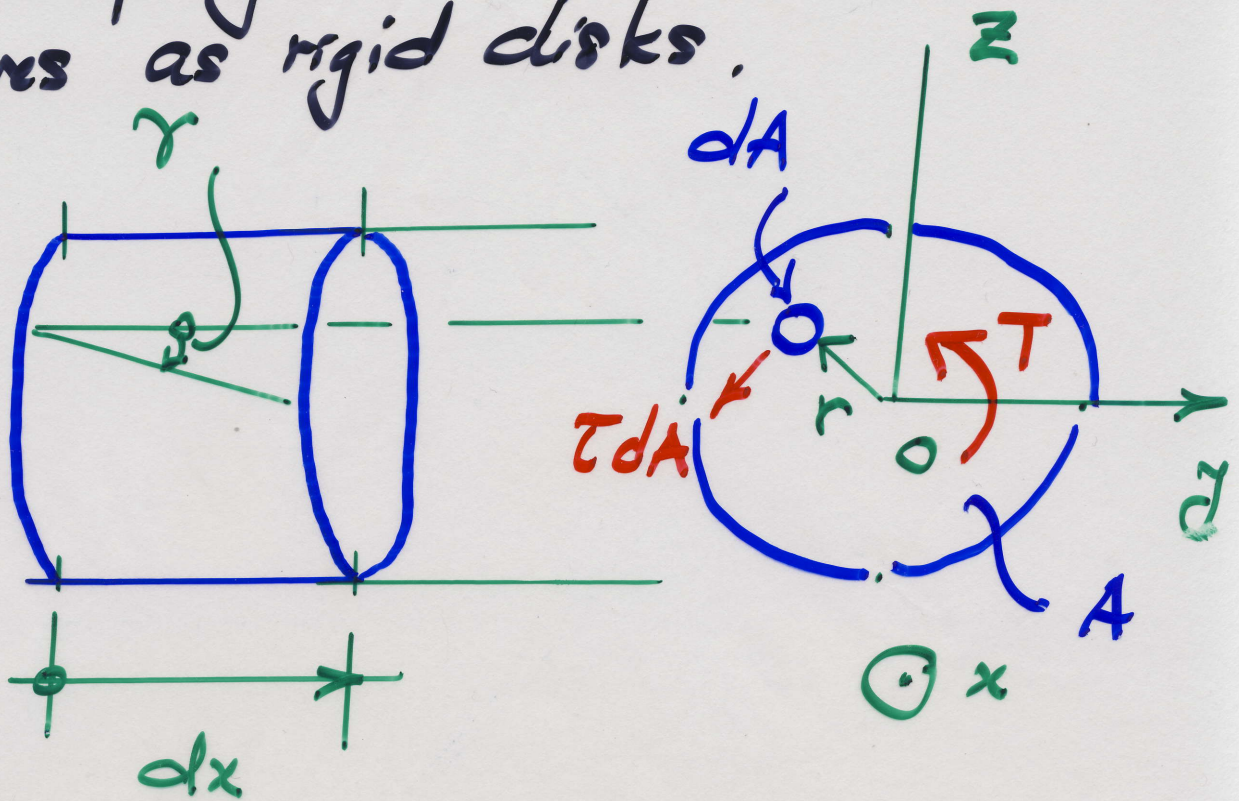 as rigid disks.
z
γ
dA
T
r
τdA
O
y
A
x
dx